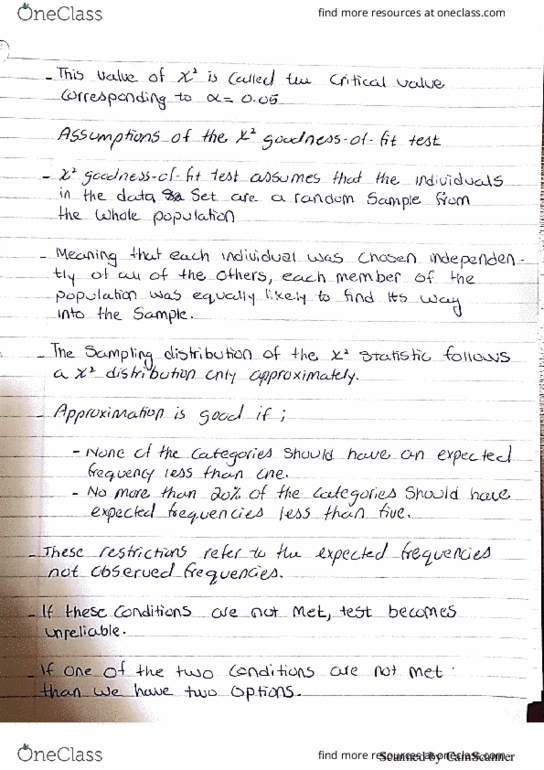 OneClass
find more resources at oneclass.com
- This value of χ² is called the critical value
corresponding to α = 0.05
Assumptions of the χ² goodness-of-fit test
- χ² goodness-of-fit test assumes that the individuals
in the data set are a random sample from
the whole population
- Meaning that each individual was chosen independen-
tly of all of the others, each member of the
population was equally likely to find its way
into the sample.
- The sampling distribution of the χ² statistic follows
a χ² distribution only approximately.
- Approximation is good if ;
- None of the categories should have an expected
frequency less than one.
- No more than 20% of the categories should have
expected frequencies less than five.
- These restrictions refer to the expected frequencies
not observed frequencies.
- If these conditions are not met, test becomes
unreliable.
- If one of the two conditions are not met
than we have two options.
OneClass
find more resources at oneclass.com
Scanned by CamScanner